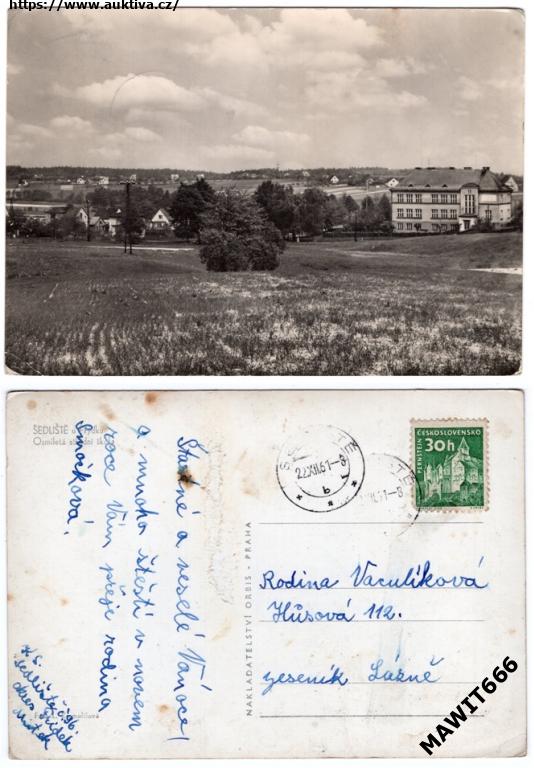 https://www.auktiva.cz/
SEDLIŠTĚ
Osmiletá střední
ČESKOSLOVENSKO
30h
PERNŠTEJN
22.XII.61-8
b
Šťastné a veselé Vánoce
a mnoho štěstí v novém
roce Vám přeje rodina
Smočková.
NAKLADATELSTVÍ ORBIS - PRAHA
Rodina Vaculíková
Húsová 112.
Jeseník Lázně
Sedliště č. 96.
okres
MAWIT666